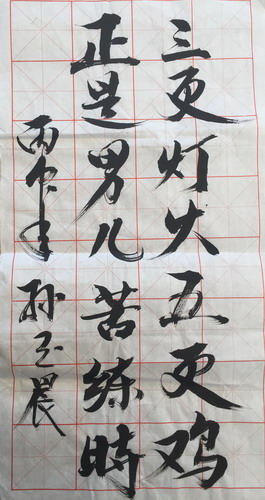 三更灯火五更鸡
正是男儿苦练时
丙申年 孙玉晨